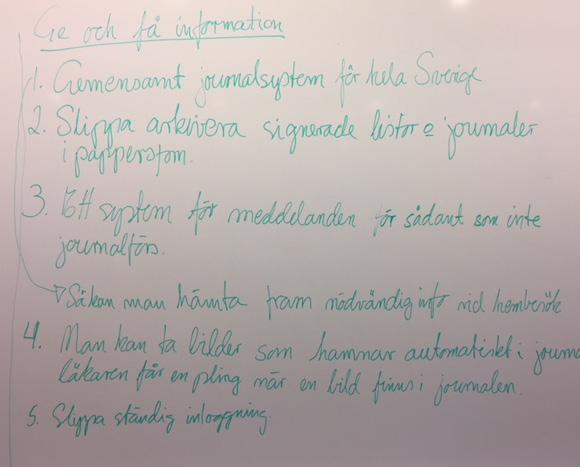 Ge och få information
1. Gemensamt journalsystem för hela Sverige
2. Slippa arkivera signerade listor o journaler
i pappersform.
3. Ett system för meddelanden för sådant som inte
journalförs.
Så kan man hämta fram nödvändig info vid hembesök
4. Man kan ta bilder som hamnar automatiskt i journa
läkaren får en pling när en bild finns i journalen.
5. Slippa ständig inloggning.